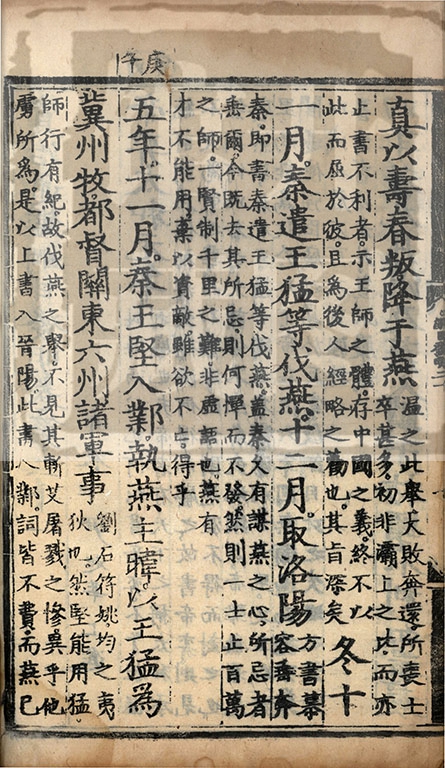 庚午
真以壽春叛降于燕
溫之此舉大敗奔還所喪士
卒甚多初非灞上之比而亦
止書不利者示王師之體存中國之義終不以
此而屈於彼且爲後人經略之勸也其旨深矣
冬十
一月秦遣王猛等伐燕十二月取洛陽
方書慕
容垂奔
秦即書秦遣王猛等伐燕蓋秦久有謀燕之心所忌者
垂爾今既去其所忌則何憚而不發然則一士止百萬
之師一賢制千里之難非虛語也燕有
才不能用棄以資敵雖欲不亡得乎
五年十一月秦王堅入鄴執燕主暐以王猛爲
冀州牧都督關東六州諸軍事
劉石符姚均之夷
狄也然堅能用猛
師行有紀故伐燕之舉不見其斬艾屠戮之慘異乎他
虜所爲是以上書入晉陽此書入鄴詞皆不費而燕已